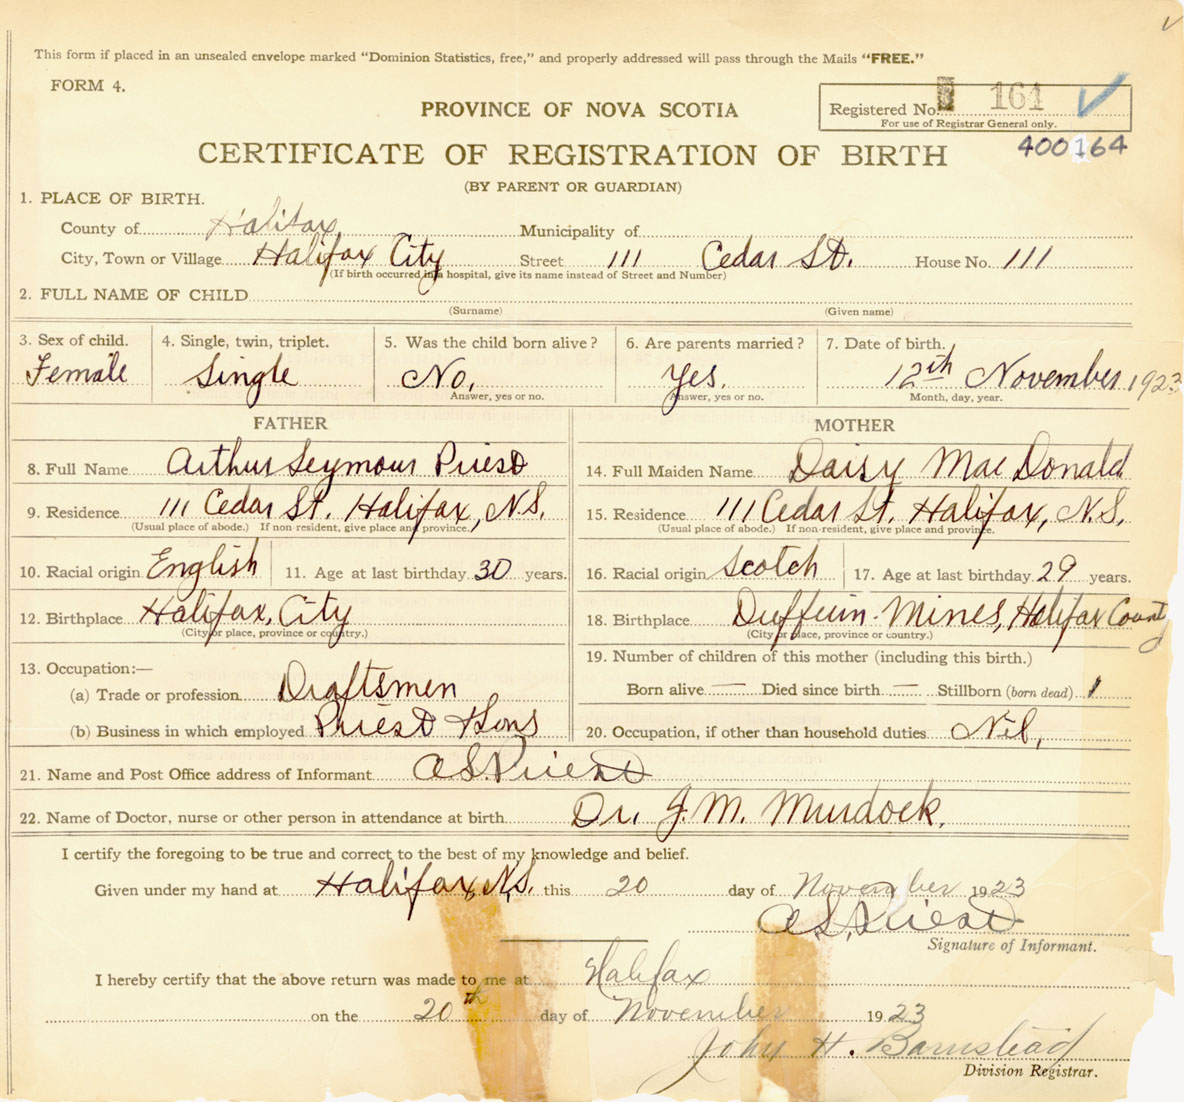 This form if placed in an unsealed envelope marked "Dominion Statistics, free," and properly addressed will pass through the Mails "FREE."
FORM 4.
PROVINCE OF NOVA SCOTIA
Registered No. 161
For use of Registrar General only.
CERTIFICATE OF REGISTRATION OF BIRTH
400164
(BY PARENT OR GUARDIAN)
1. PLACE OF BIRTH.
County of Halifax Municipality of
City, Town or Village Halifax City Street 111 Cedar St. House No. 111
(If birth occurred in a hospital, give its name instead of Street and Number)
2. FULL NAME OF CHILD
(Surname) (Given name)
3. Sex of child. 4. Single, twin, triplet. 5. Was the child born alive? 6. Are parents married? 7. Date of birth.
Female Single No. Yes. 12th November 1923
Answer, yes or no. Answer, yes or no. Month, day, year.
FATHER MOTHER
8. Full Name Arthur Seymour Priest 14. Full Maiden Name Daisy MacDonald
9. Residence 111 Cedar St. Halifax, N.S. 15. Residence 111 Cedar St. Halifax, N.S.
(Usual place of abode.) If non resident, give place and province. (Usual place of abode.) If non-resident, give place and province.
10. Racial origin English 11. Age at last birthday 30 years. 16. Racial origin Scotch 17. Age at last birthday 29 years.
12. Birthplace Halifax, City 18. Birthplace Dufferin Mines, Halifax County
(City or place, province or country.) (City or place, province or country.)
13. Occupation:— 19. Number of children of this mother (including this birth.)
(a) Trade or profession Draftsmen Born alive — Died since birth — Stillborn (born dead) 1
(b) Business in which employed Priest & Sons 20. Occupation, if other than household duties Nil,
21. Name and Post Office address of Informant A.S. Priest
22. Name of Doctor, nurse or other person in attendance at birth Dr. J. M. Murdock.
I certify the foregoing to be true and correct to the best of my knowledge and belief.
Given under my hand at Halifax, N.S. this 20 day of November 1923
A.S. Priest
Signature of Informant.
I hereby certify that the above return was made to me at Halifax
on the 20th day of November 1923
John H. Barnstead
Division Registrar.